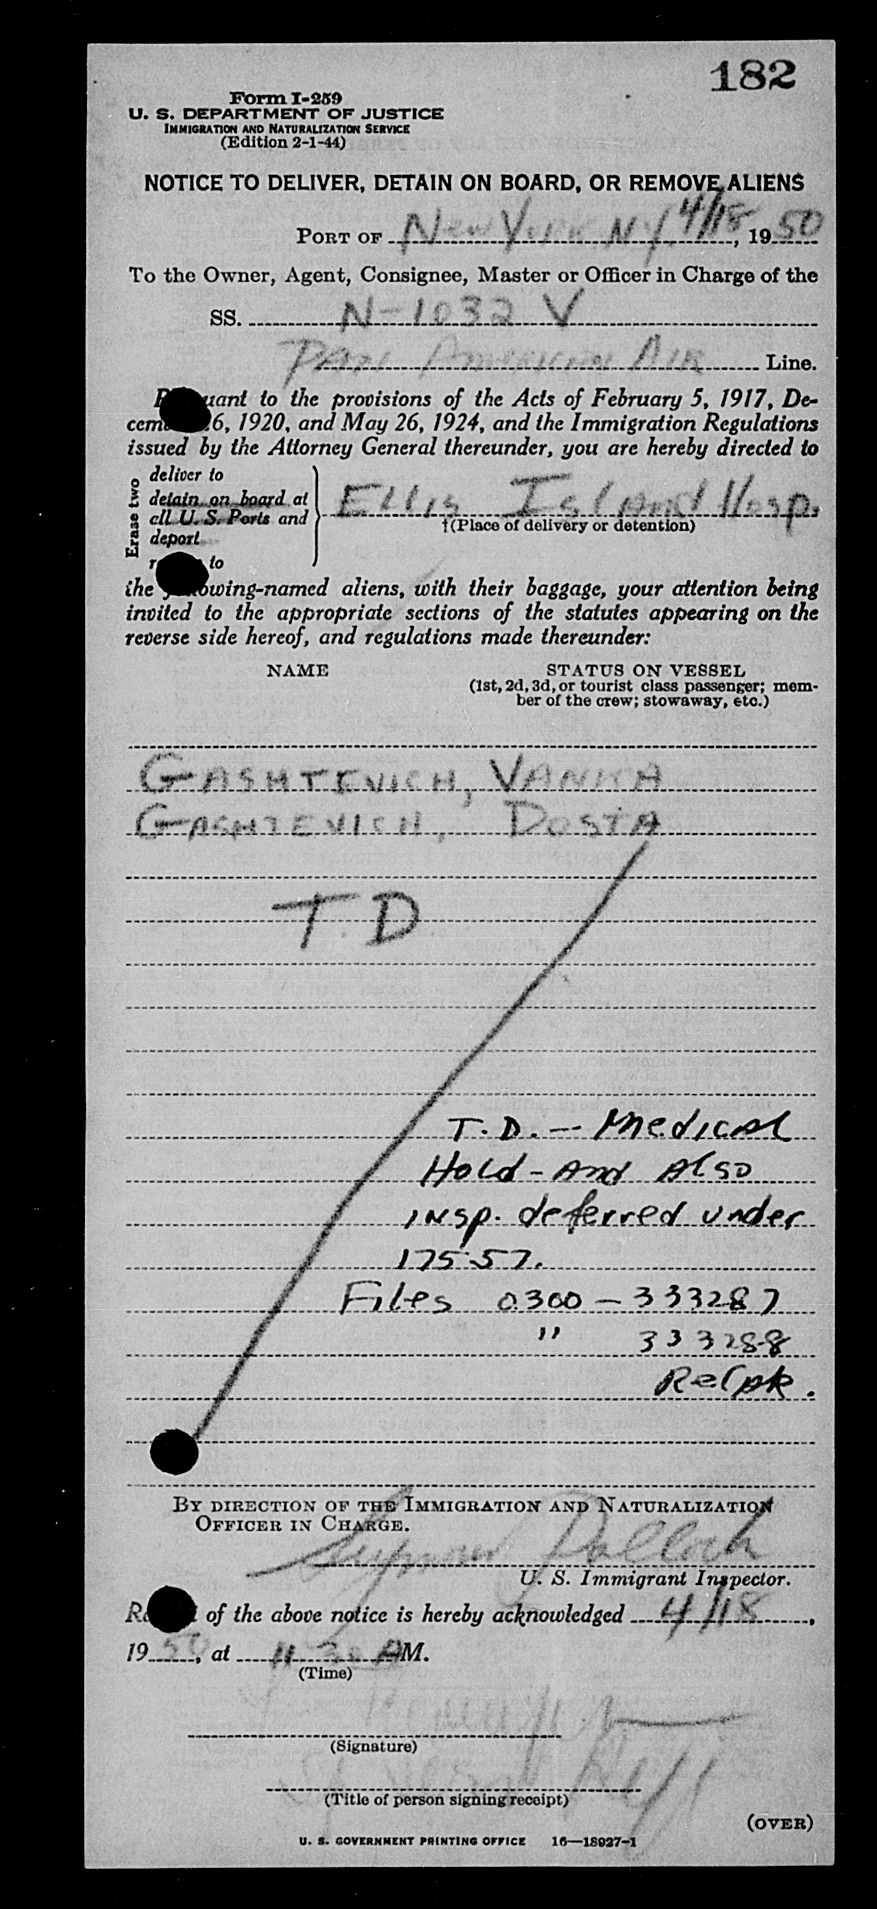 182
Form I-259
U. S. DEPARTMENT OF JUSTICE
IMMIGRATION AND NATURALIZATION SERVICE
(Edition 2-1-44)
NOTICE TO DELIVER, DETAIN ON BOARD, OR REMOVE ALIENS
PORT OF New York NY, 4/18, 1950
To the Owner, Agent, Consignee, Master or Officer in Charge of the
SS. N-1032 V
PAN AMERICAN AIR Line.
uant to the provisions of the Acts of February 5, 1917, De-
cem 6, 1920, and May 26, 1924, and the Immigration Regulations
issued by the Attorney General thereunder, you are hereby directed to
Erase two
deliver to
detain on board at
all U. S. Ports and
deport
to
Ellis Island Hosp.
†(Place of delivery or detention)
the owing-named aliens, with their baggage, your attention being
invited to the appropriate sections of the statutes appearing on the
reverse side hereof, and regulations made thereunder:
NAME
STATUS ON VESSEL
(1st, 2d, 3d, or tourist class passenger; mem-
ber of the crew; stowaway, etc.)
GASHTEVICH, VANKA
GASHTEVICH, DOSTA
T.D
T.D. — Medical
Hold - And Also
insp. deferred under
175.57.
Files 0300 - 333287
" 333288
By direction of the Immigration and Naturalization
Officer in Charge.
Seymour Pollock
U. S. Immigrant Inspector.
of the above notice is hereby acknowledged 4/18,
1950, at 11 30 AM.
(Time)
(Signature)
(Title of person signing receipt)
(OVER)
U. S. GOVERNMENT PRINTING OFFICE 16—18927-1